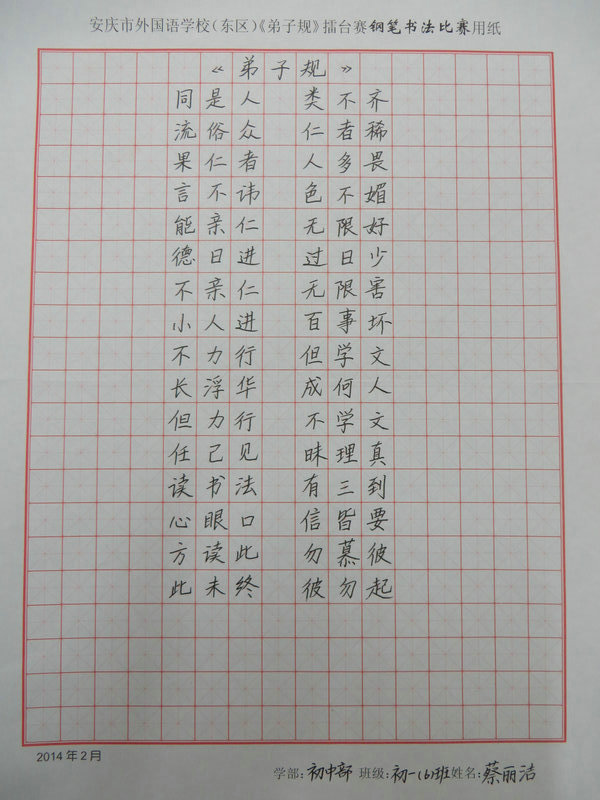 安庆市外国语学校(东区)《弟子规》擂台赛钢笔书法比赛用纸
《弟子规》
同是人 类不齐
流俗众 仁者稀
果仁者 人多畏
言不讳 色不媚
能亲仁 无限好
德日进 过日少
不亲仁 无限害
小人进 百事坏
不力行 但学文
长浮华 成何人
但力行 不学文
任己见 昧理真
读书法 有三到
心眼口 信皆要
方读此 勿慕彼
此未终 彼勿起
2014年2月
学部:初中部 班级:初一(6)班姓名:蔡丽洁